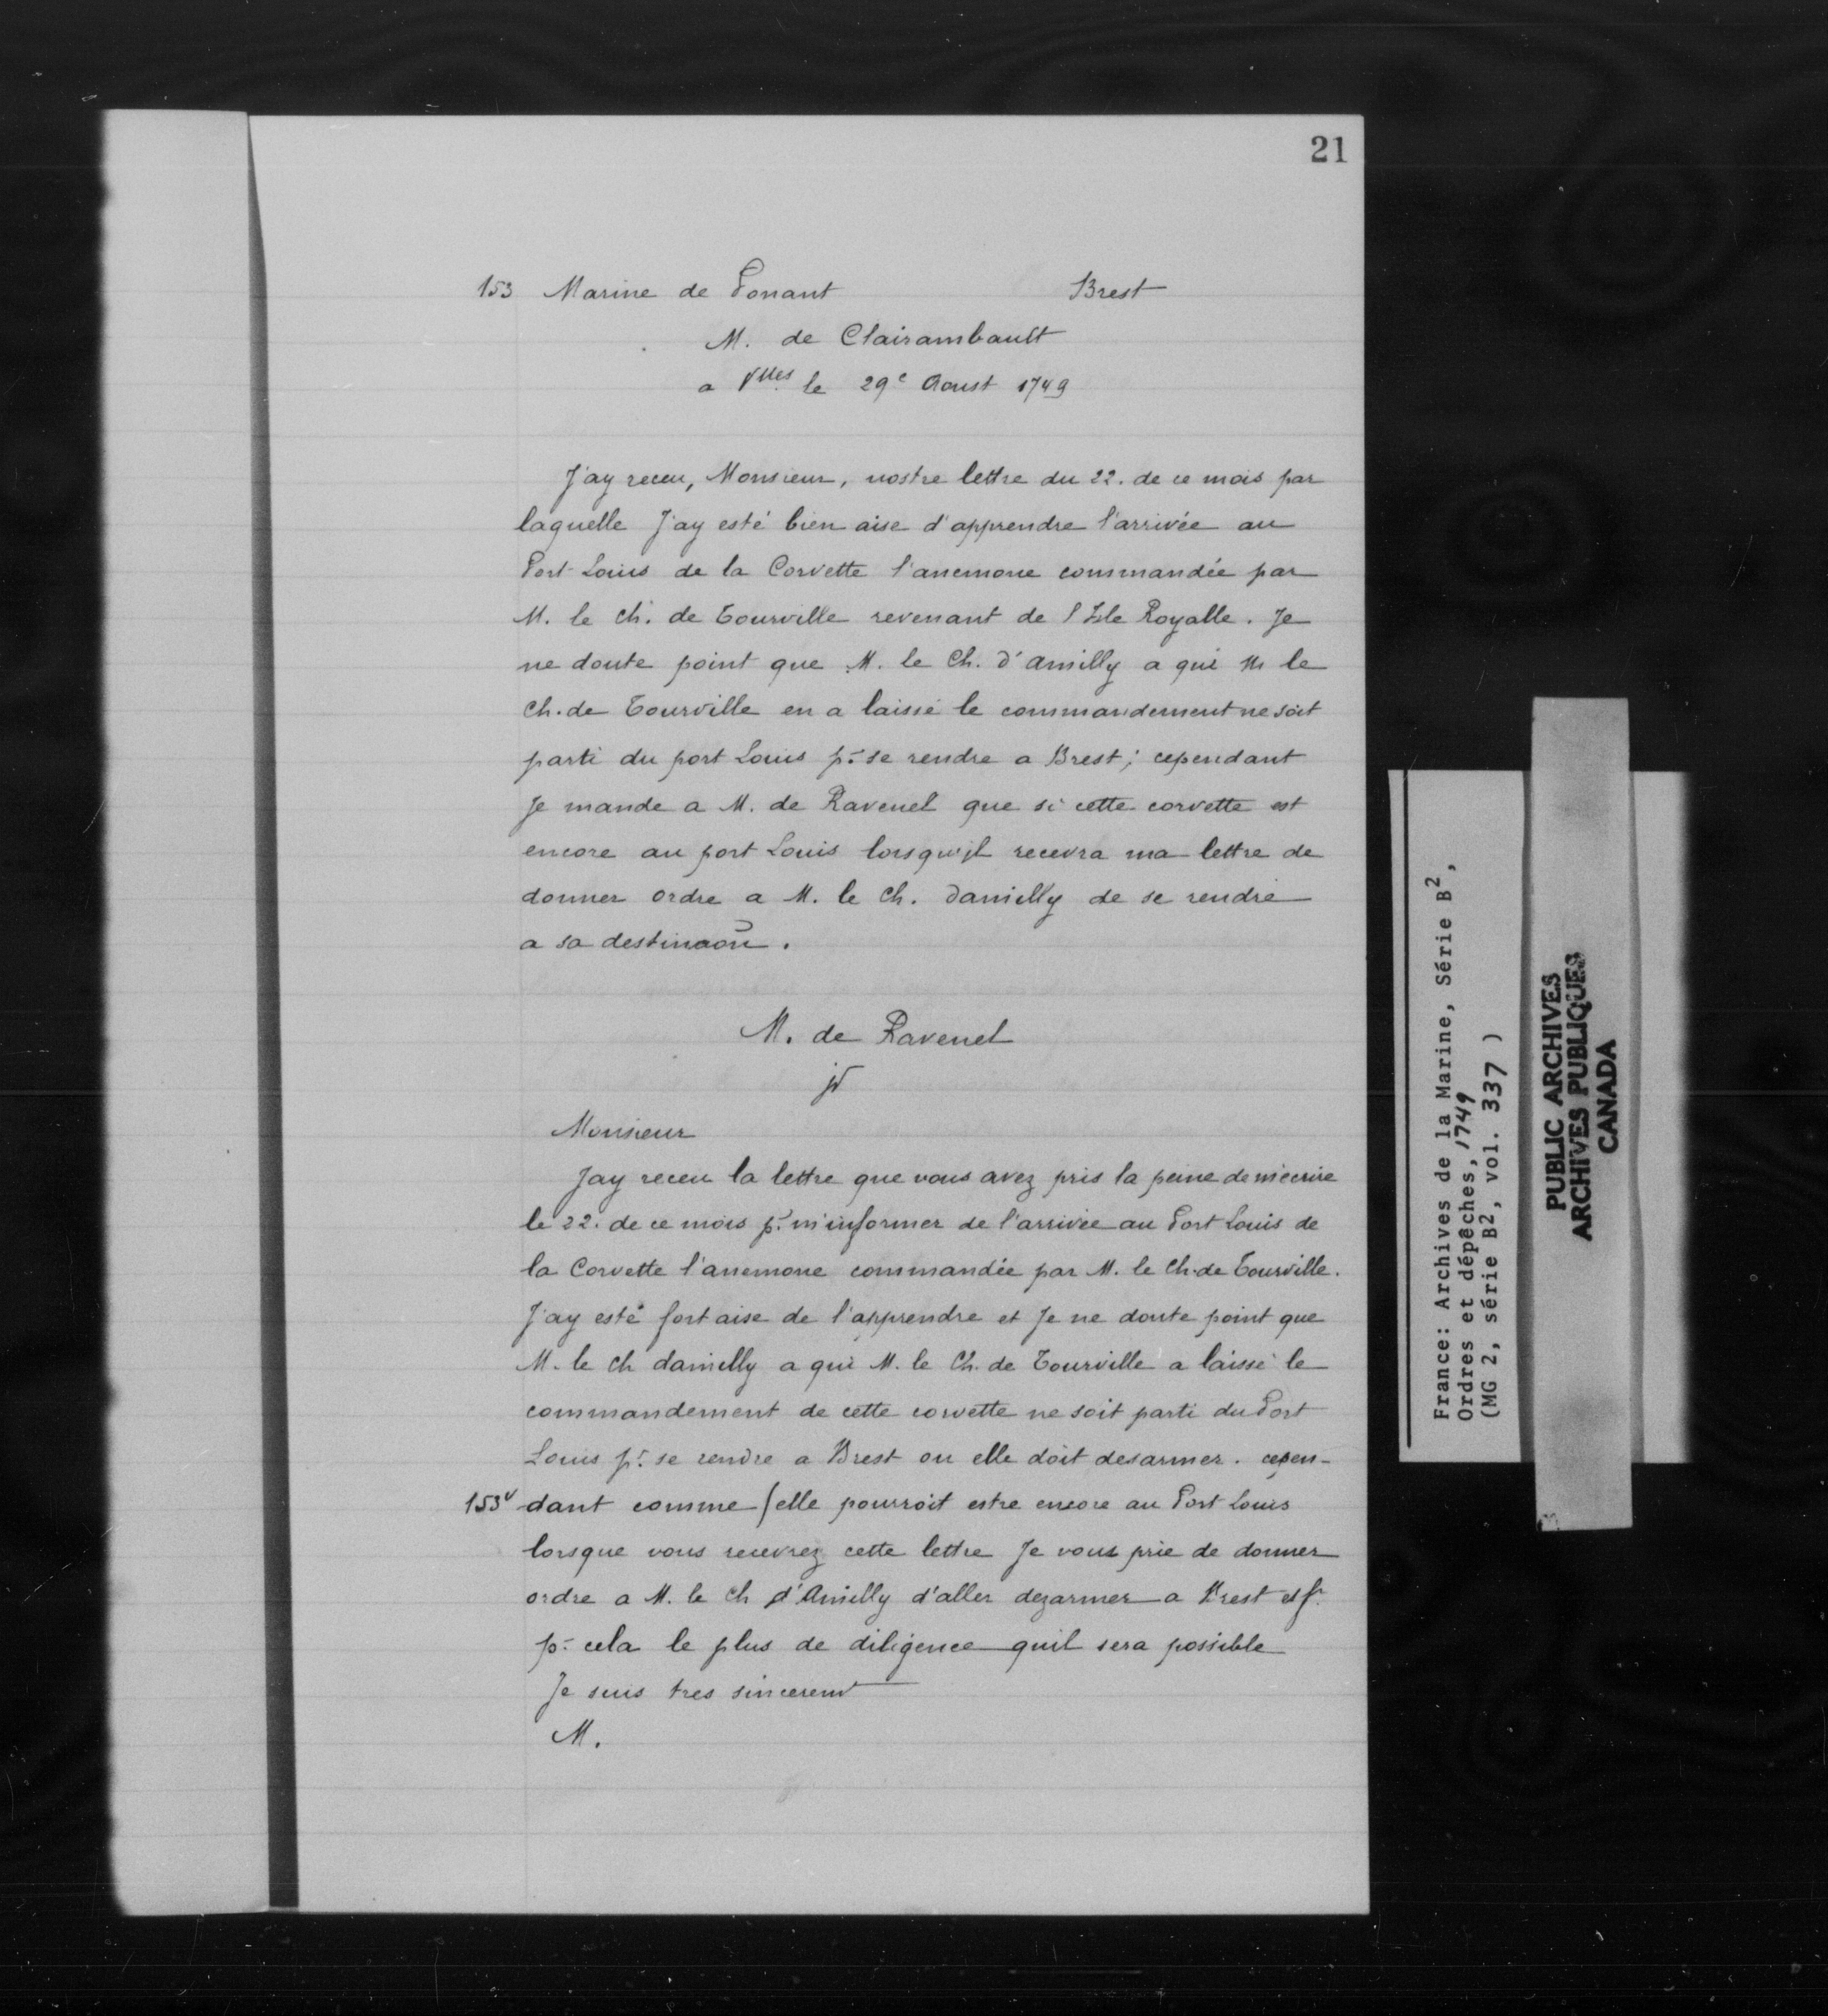 21
153 Marine de Ponant Brest
M. de Clairambault
a Vlles le 29e Aoust 1749
J'ay receu, Monsieur, vostre lettre du 22. de ce mois par
laquelle J'ay esté bien aise d'apprendre l'arrivée au
Port Louis de la Corvette l'anemone commandée par
M. le Ch. de Tourville revenant de l'Isle Royalle. Je
ne doute point que M. le Ch. d'amilly a qui M le
Ch. de Tourville en a laissé le commandement ne soit
parti du port Louis pr se rendre a Brest; cependant
Je mande a M. de Ravenel que si cette corvette est
encore au port Louis lorsqu'jl recevra ma lettre de
donner ordre a M. le Ch. damilly de se rendre
a sa destinaōn.
M. de Ravenel
jd
Monsieur
Jay receu la lettre que vous avez pris la peine de m'écrire
le 22. de ce mois pr m'informer de l'arrivée au Port Louis de
la Corvette l'anemone commandée par M. le Ch. de Tourville.
J'ay esté fort aise de l'apprendre et Je ne doute point que
M. le Ch damilly a qui M. le Ch. de Tourville a laissé le
commandement de cette corvette ne soit parti du Port
Louis pr se rendre a Brest ou elle doit desarmer. cepen-
153v dant comme / elle pourroit estre encore au Port Louis
lorsque vous recevrez cette lettre Je vous prie de donner
ordre a M. le Ch d'Amilly d'aller dezarmer a Brest et fr
pr cela le plus de diligence quil sera possible
Je suis tres sinceremt
M.
France: Archives de la Marine, Série B2,
Ordres et dépêches, 1749
(MG 2, série B2, vol. 337 )
PUBLIC ARCHIVES
ARCHIVES PUBLIQUES
CANADA